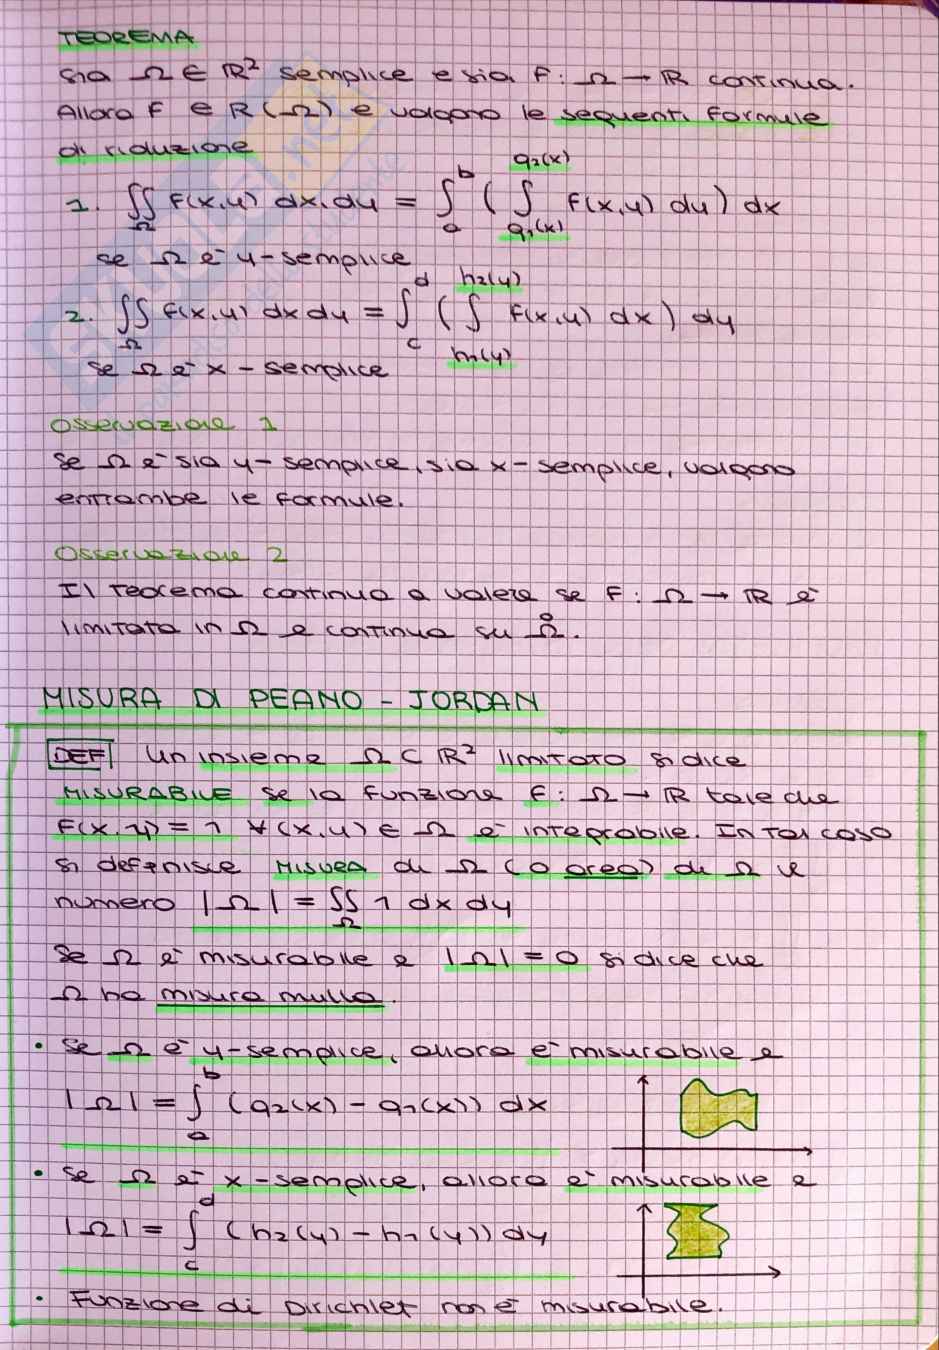 TEOREMA
Sia Ω ∈ ℝ² semplice e sia f: Ω → ℝ continua.
Allora f ∈ R(Ω) e valgono le seguenti formule
di riduzione
1. ∬_Ω f(x,y) dx dy = ∫_a^b ( ∫_{g₁(x)}^{g₂(x)} f(x,y) dy ) dx
se Ω è y-semplice
2. ∬_Ω f(x,y) dx dy = ∫_c^d ( ∫_{h₁(y)}^{h₂(y)} f(x,y) dx ) dy
se Ω è x-semplice
Osservazione 1
Se Ω è sia y-semplice, sia x-semplice, valgono
entrambe le formule.
Osservazione 2
Il teorema continua a valere se f: Ω → ℝ è
limitata in Ω e continua su Ω̊.
MISURA DI PEANO - JORDAN
DEF Un insieme Ω ⊂ ℝ² limitato si dice
MISURABILE se la funzione f: Ω → ℝ tale che
f(x,y) = 1 ∀(x,y) ∈ Ω è integrabile. In tal caso
si definisce MISURA di Ω (o area) di Ω il
numero |Ω| = ∬_Ω 1 dx dy
Se Ω è misurabile e |Ω| = 0 si dice che
Ω ha misura nulla.
• Se Ω è y-semplice, allora è misurabile e
|Ω| = ∫_a^b (g₂(x) - g₁(x)) dx
• Se Ω è x-semplice, allora è misurabile e
|Ω| = ∫_c^d (h₂(y) - h₁(y)) dy
• Funzione di Dirichlet non è misurabile.